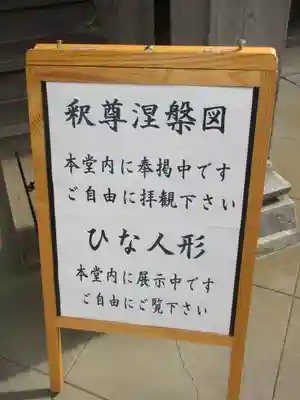 釈尊涅盤図
本堂内に奉掲中です
ご自由に拝観下さい
ひな人形
本堂内に展示中です
ご自由にご覧下さい